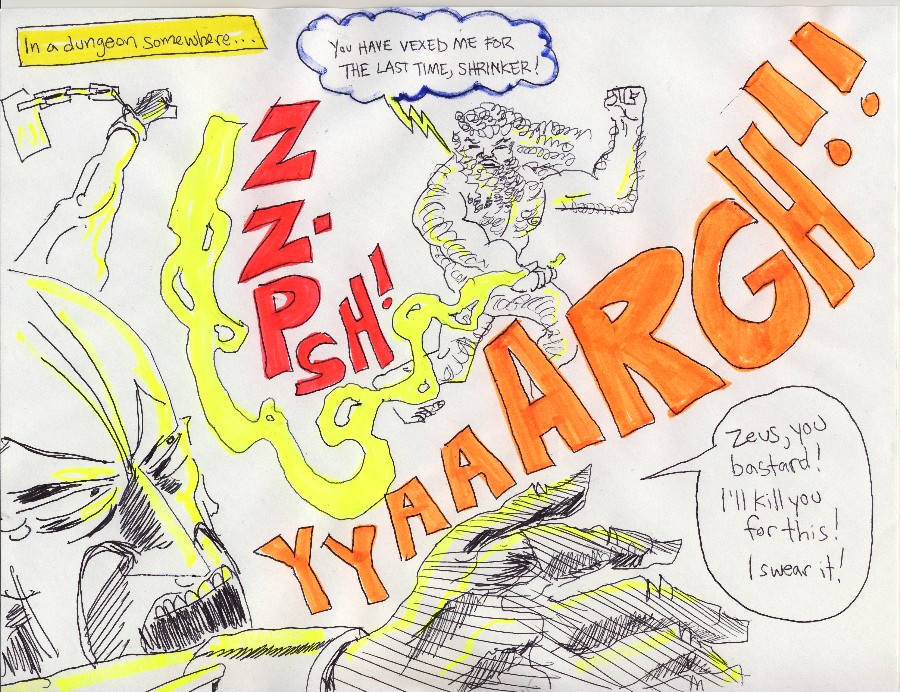 In a dungeon somewhere...
YOU HAVE VEXED ME FOR
THE LAST TIME, SHRINKER!
ZZ.PSH!
YYAAAARGH!!!
Zeus, you
bastard!
I'll kill you
for this!
I swear it!